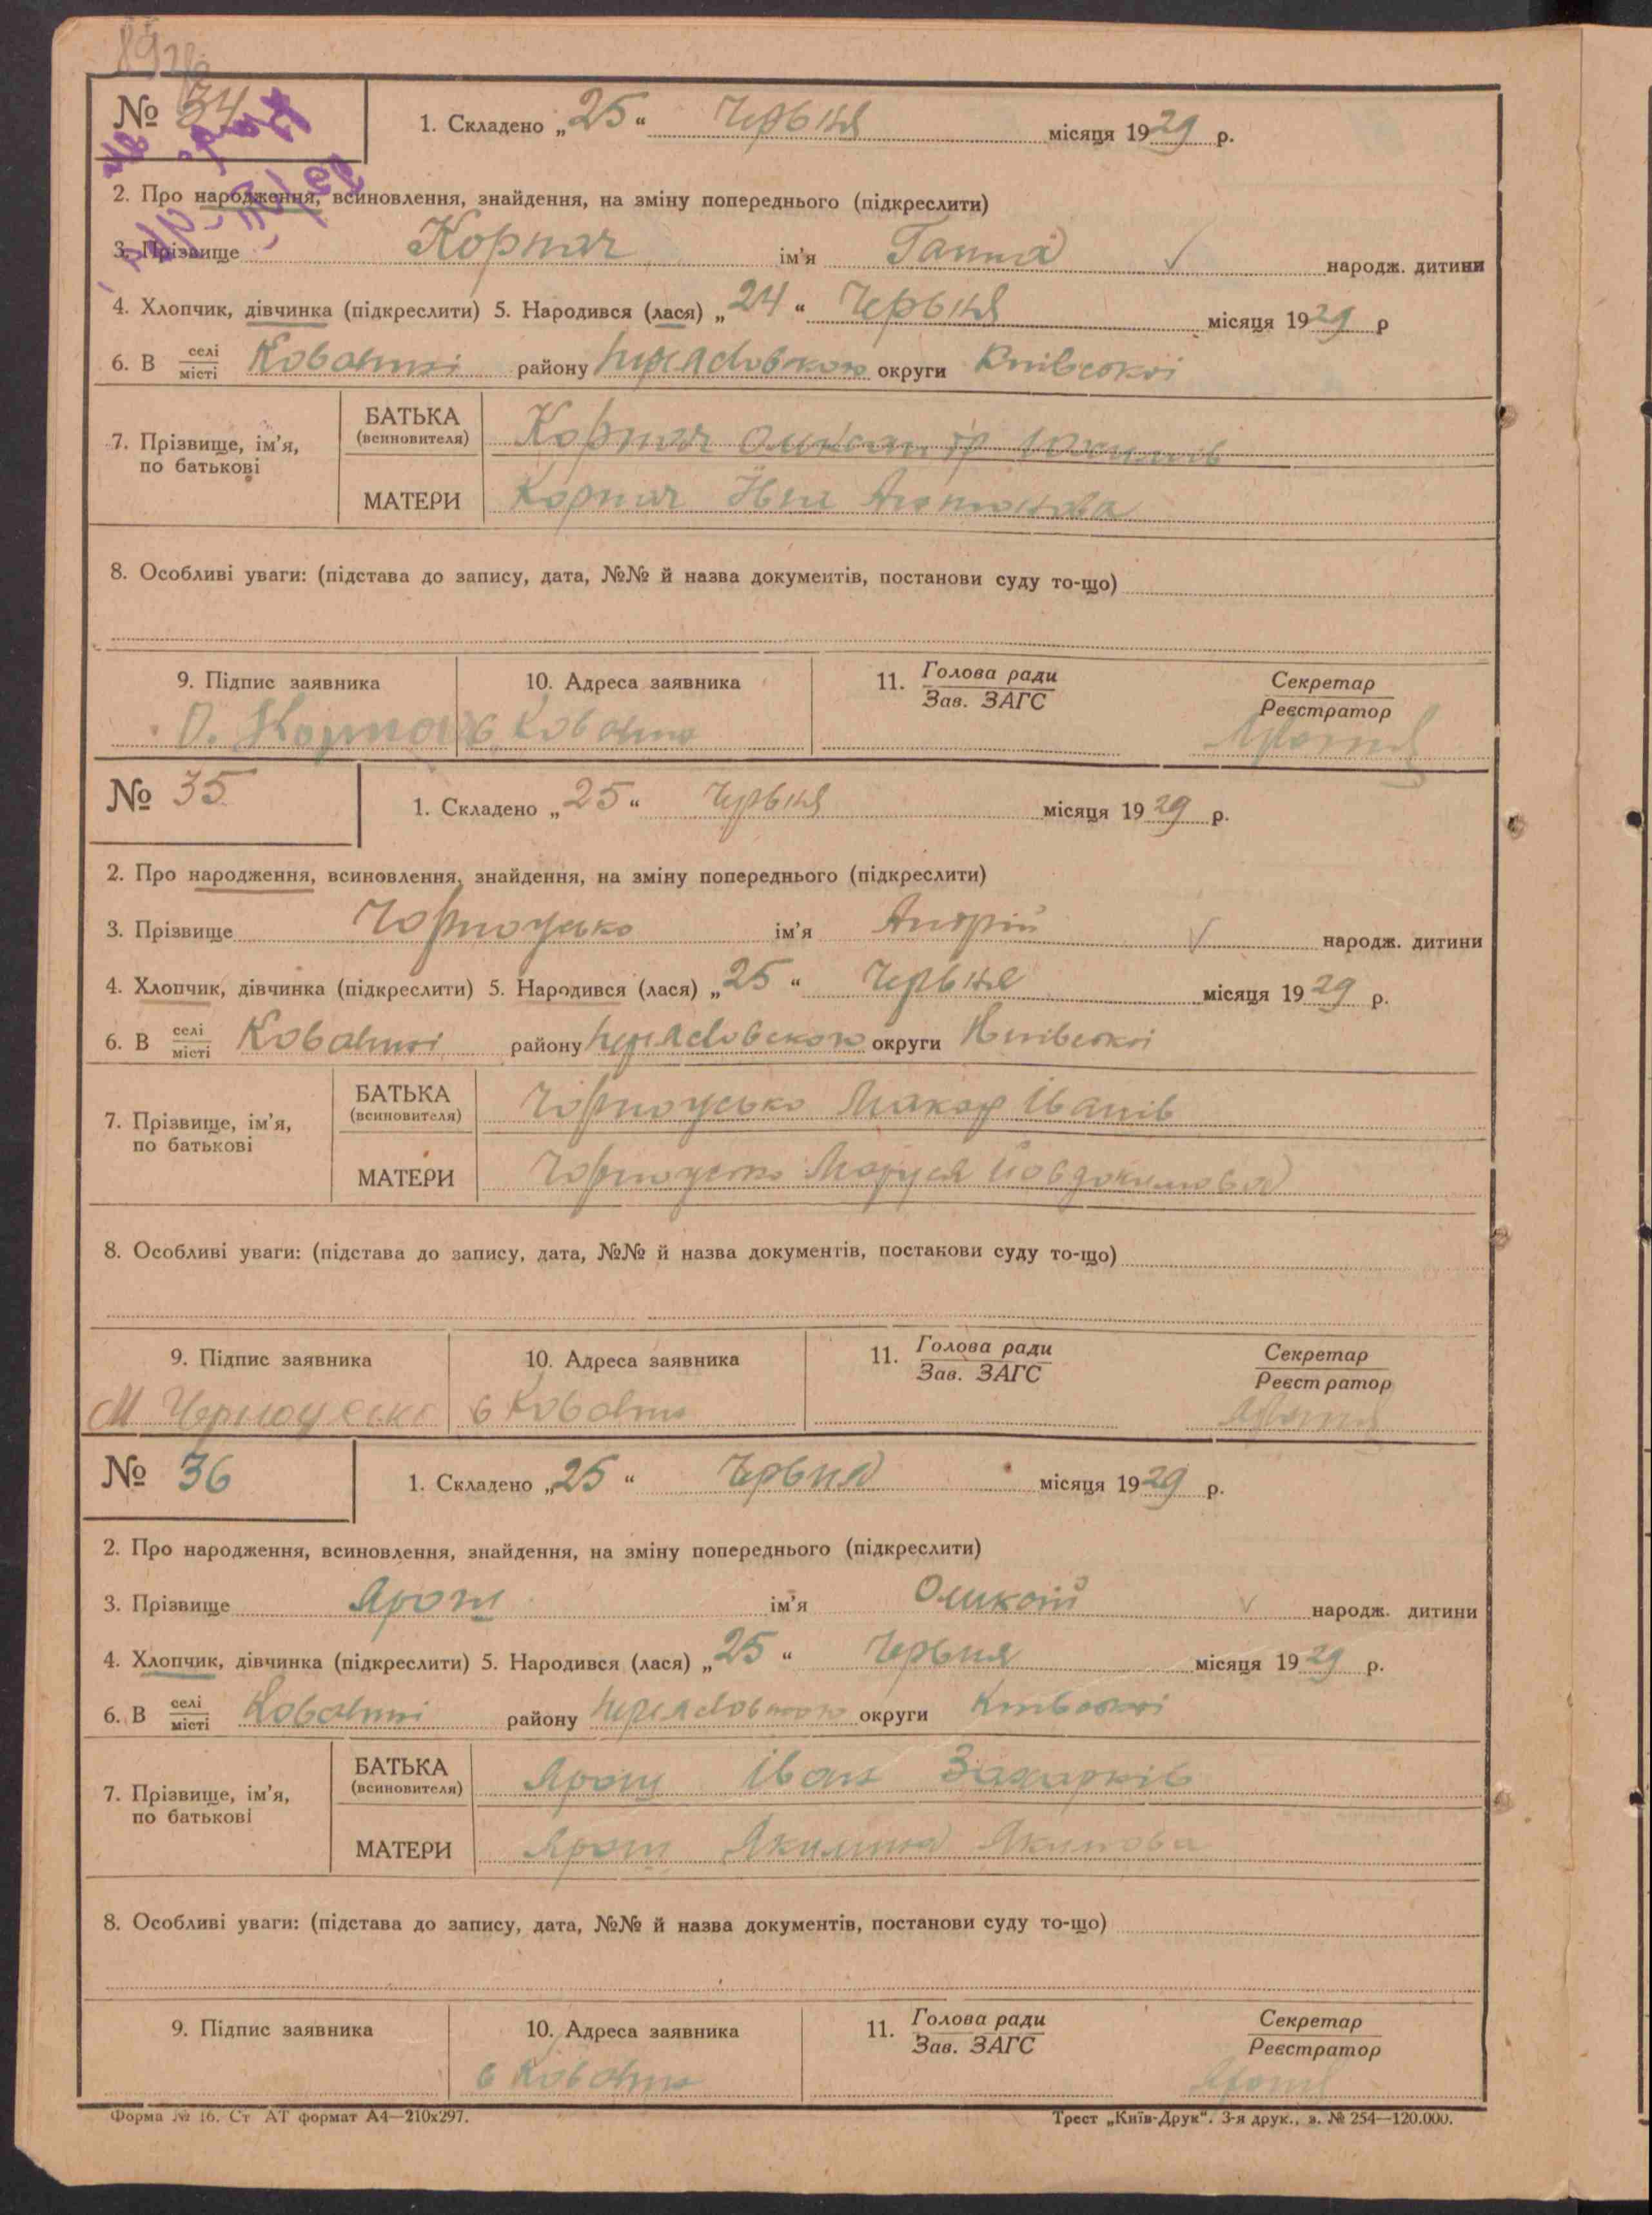 № 34
1. Складено „25“ Червня місяця 1929 р.
2. Про народження, всиновлення, знайдення, на зміну попереднього (підкреслити)
3. Прізвище Корпач ім'я Ганна народж. дитини
4. Хлопчик, дівчинка (підкреслити) 5. Народився (лася) „24“ Червня місяця 1929 р
6. В селі місті Ковалині району округи Київської
7. Прізвище, ім'я, по батькові
БАТЬКА (всиновителя) Корпач
МАТЕРИ Корпач Антонова
8. Особливі уваги: (підстава до запису, дата, №№ й назва документів, постанови суду то-що)
9. Підпис заявника 10. Адреса заявника 11. Голова ради Зав. ЗАГС Секретар Реєстратор
О. Корпач с Ковалин
№ 35
1. Складено „25“ Червня місяця 1929 р.
2. Про народження, всиновлення, знайдення, на зміну попереднього (підкреслити)
3. Прізвище Чорноусько ім'я Андрій народж. дитини
4. Хлопчик, дівчинка (підкреслити) 5. Народився (лася) „25“ Червня місяця 1929 р.
6. В селі місті Ковалині району округи Київської
7. Прізвище, ім'я, по батькові
БАТЬКА (всиновителя) Чорноусько Макар Іванів
МАТЕРИ Чорноусько Маруся Йовдокимова
8. Особливі уваги: (підстава до запису, дата, №№ й назва документів, постанови суду то-що)
9. Підпис заявника 10. Адреса заявника 11. Голова ради Зав. ЗАГС Секретар Реєстратор
М с Ковалин
№ 36
1. Складено „25“ Червня місяця 1929 р.
2. Про народження, всиновлення, знайдення, на зміну попереднього (підкреслити)
3. Прізвище Ярош ім'я народж. дитини
4. Хлопчик, дівчинка (підкреслити) 5. Народився (лася) „25“ Червня місяця 1929 р.
6. В селі місті Ковалині району округи Київської
7. Прізвище, ім'я, по батькові
БАТЬКА (всиновителя) Ярош Іван Захарків
МАТЕРИ Ярош Якилина Якимова
8. Особливі уваги: (підстава до запису, дата, №№ й назва документів, постанови суду то-що)
9. Підпис заявника 10. Адреса заявника 11. Голова ради Зав. ЗАГС Секретар Реєстратор
с Ковалин
Форма № 16. Ст АТ формат А4—210х297. Трест „Київ-Друк“. 3-я друк., з. № 254—120.000.